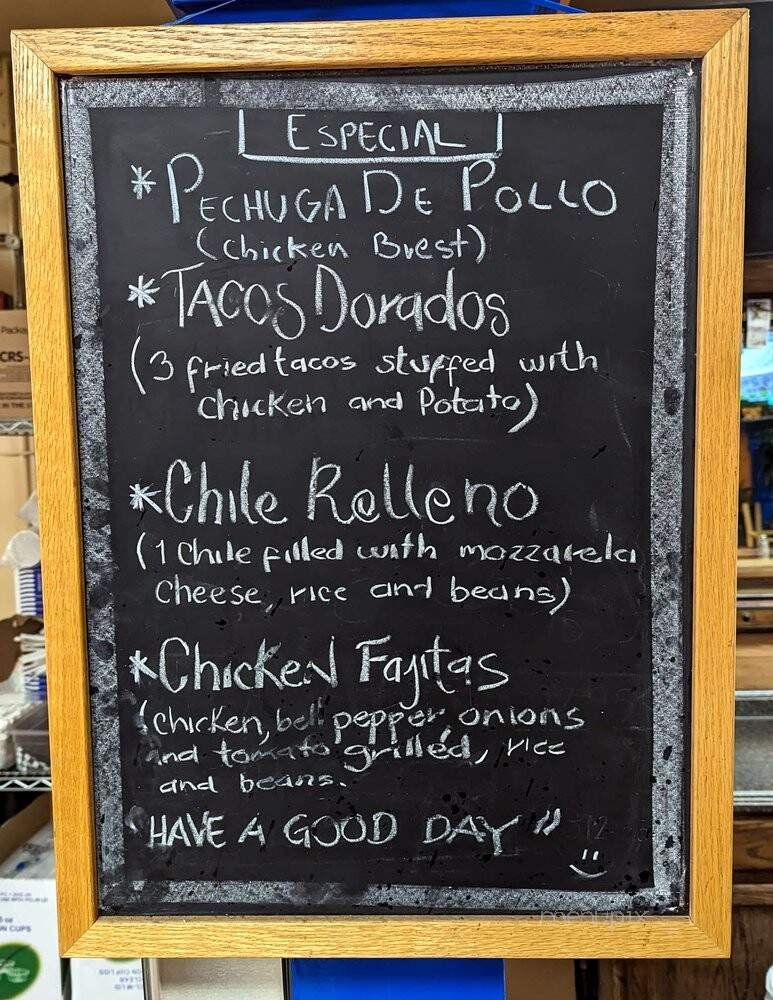 ESPECIAL
*PECHUGA DE POLLO
(chicken Brest)
*TACOS Dorados
(3 fried tacos stuffed with
chicken and Potato)
*Chile Relleno
(1 Chile filled with mozzarela
Cheese, rice and beans)
*Chicken Fajitas
(chicken, bell pepper, onions
and tomato grilled, rice
and beans.
"HAVE A GOOD DAY"
menupix
CRS-
ON CUPS